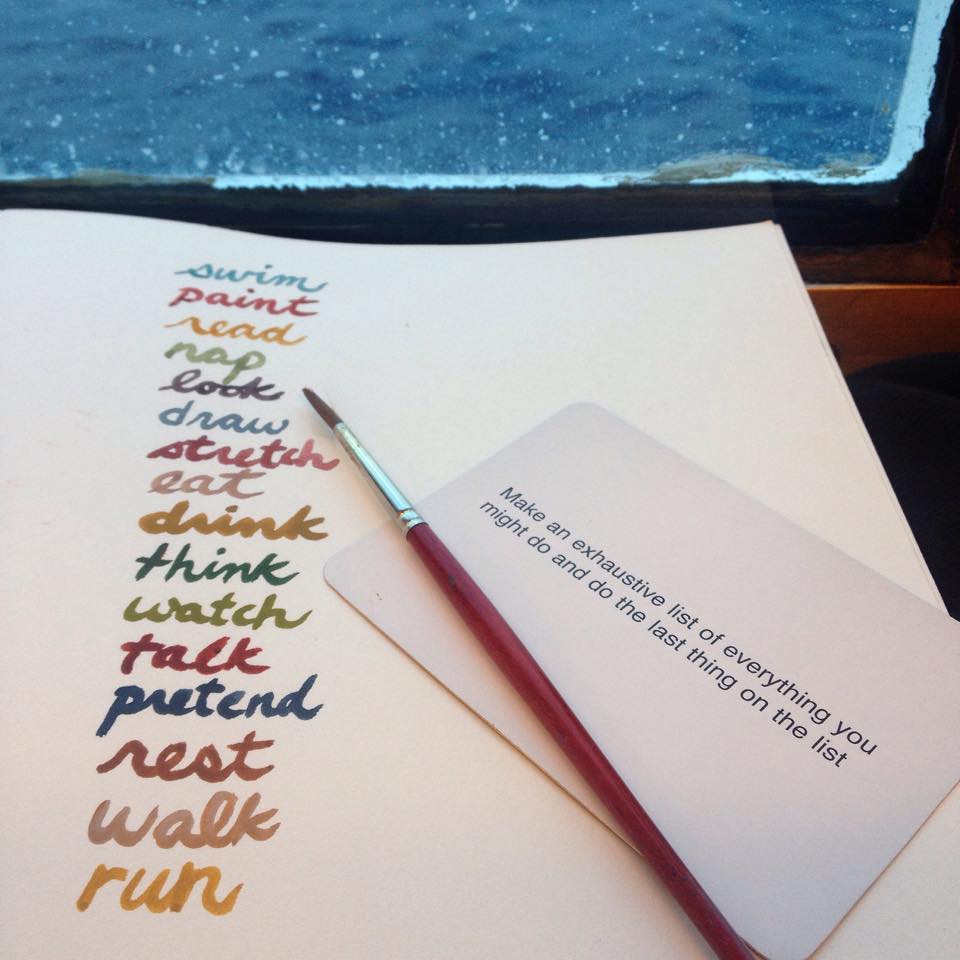 swim
paint
read
nap
look
draw
stretch
eat
drink
think
watch
talk
pretend
rest
walk
run
Make an exhaustive list of everything you
might do and do the last thing on the list